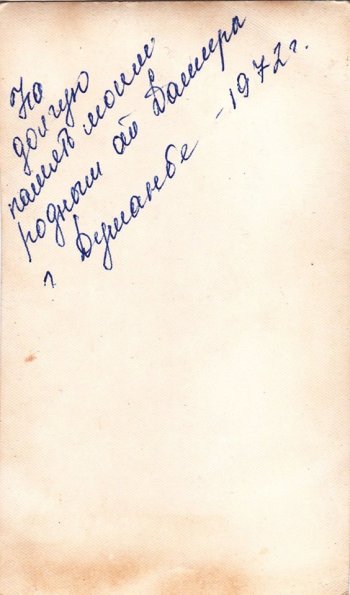 На
долгую
память моим
родным от Дамира
г Душанбе - 1972 г.